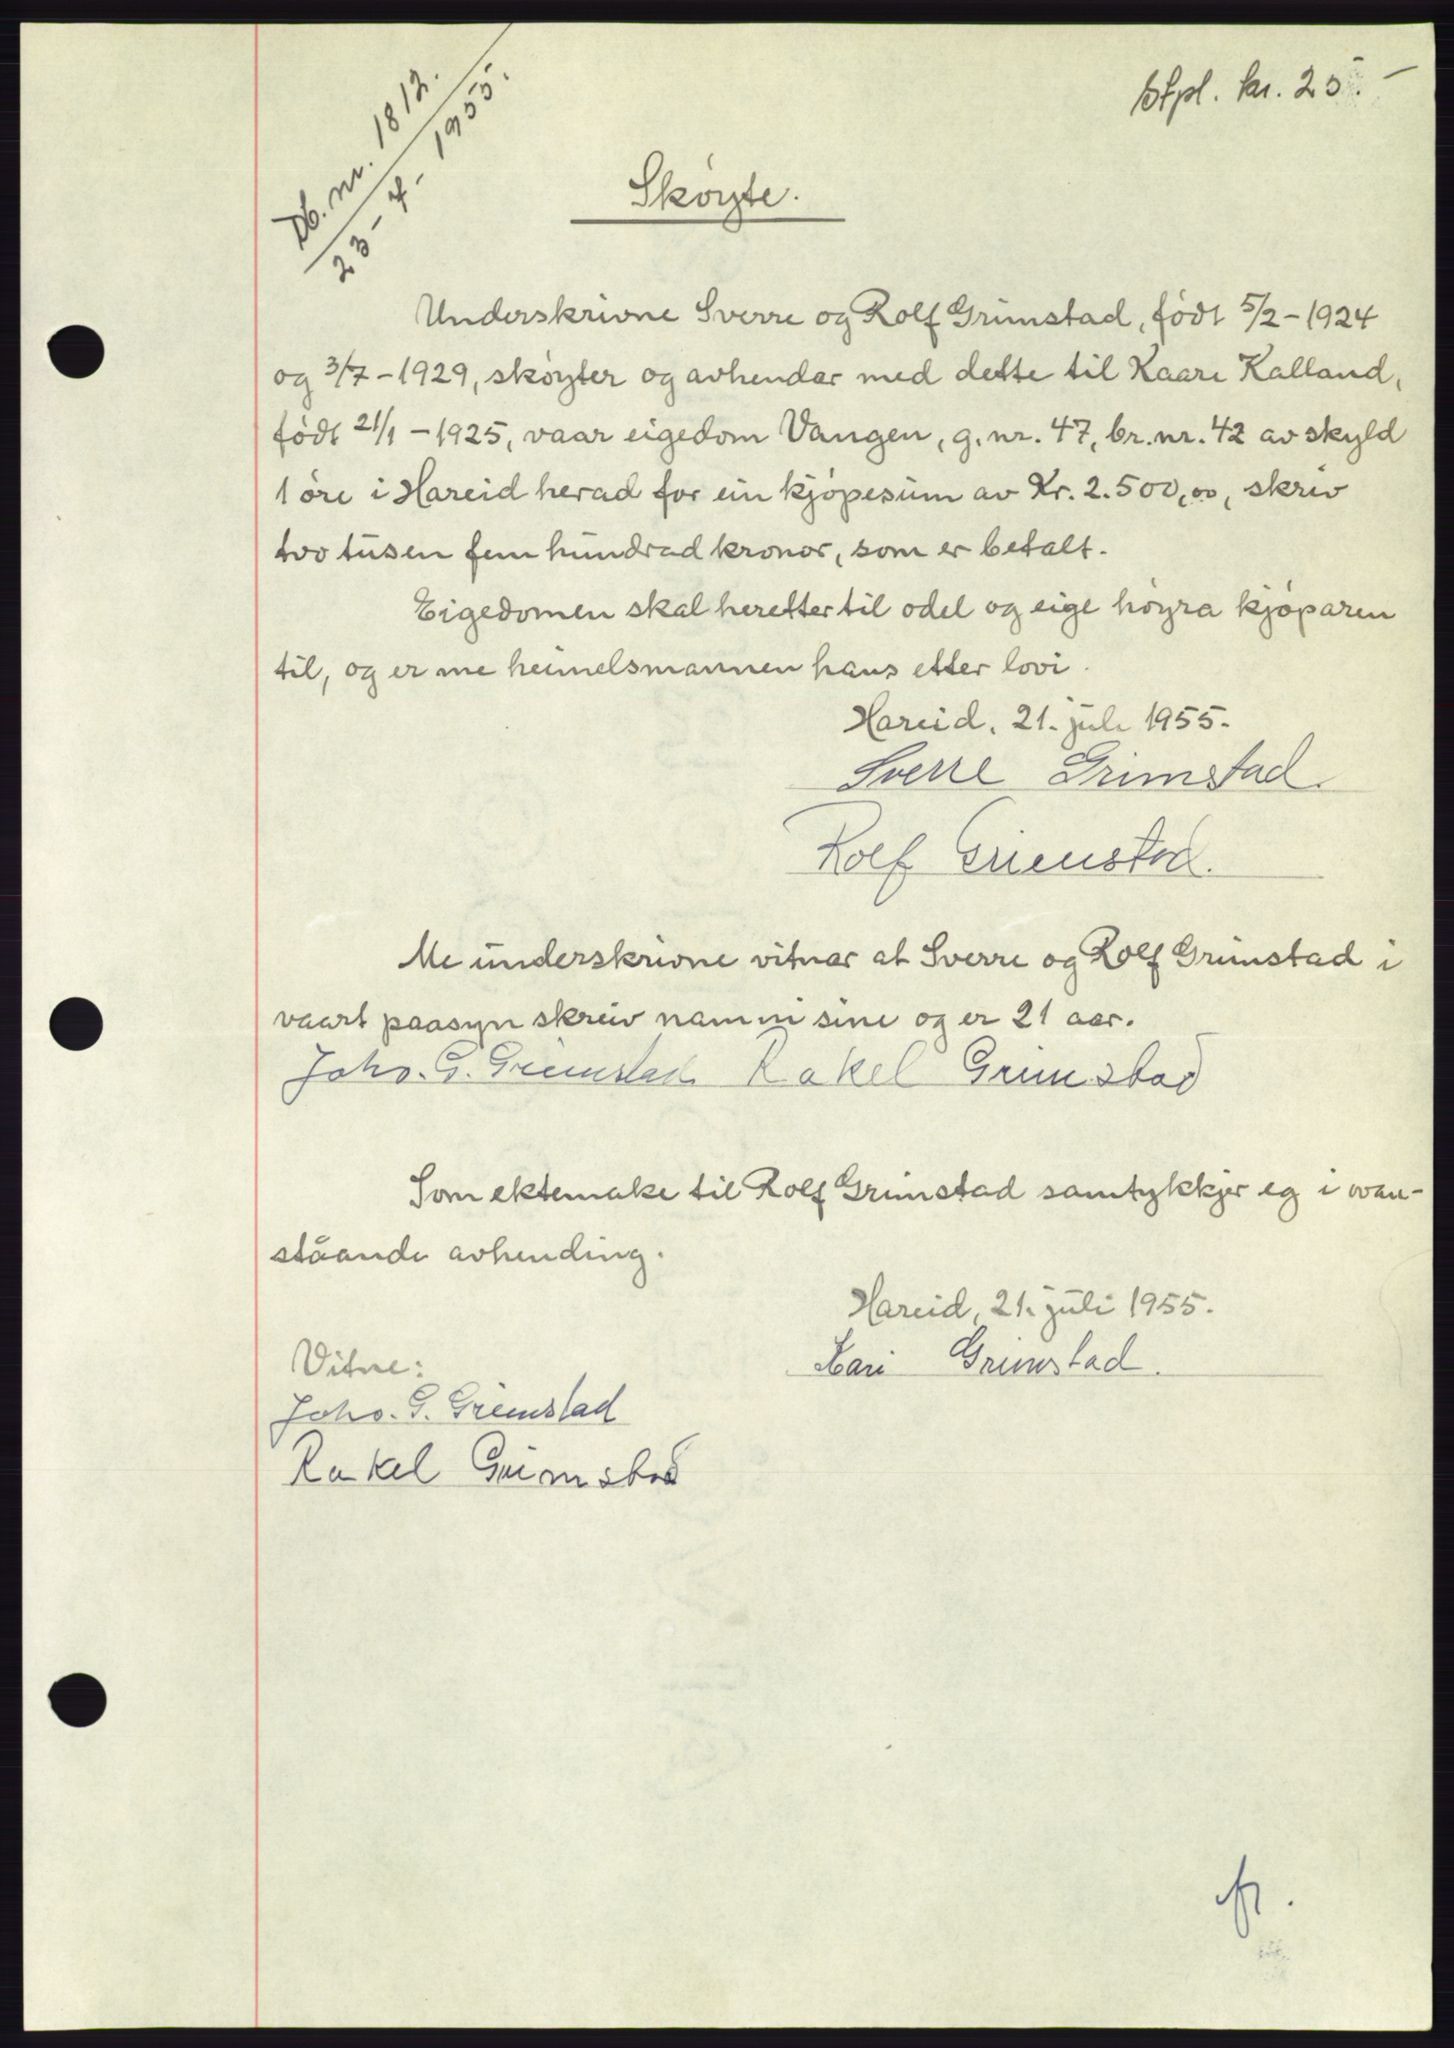 Db. nr. 1812.
23-7-1955.
Stpl. kr. 25.-
Skøyte.
Underskrivne Sverre og Rolf Grimstad, født 5/2-1924
og 3/7-1929, skøyter og avhendar med dette til Kaare Kalland,
født 21/1-1925, vaar eigedom Vangen, g.nr. 47, br.nr. 42 av skyld
1 øre i Hareid herad for ein kjøpesum av Kr. 2.500,00, skriv
tvo tusen fem hundrad kronor, som er betalt.
Eigedomen skal heretter til odel og eige høyra kjøparen
til, og er me heimelsmannen hans etter lovi.
Hareid, 21. juli 1955.
Sverre Grimstad.
Rolf Grimstad.
Me underskrivne vitnar at Sverre og Rolf Grimstad i
vaart paasyn skreiv namni sine og er 21 aar.
Johs. G. Grimstad Rakel Grimstad
Som ektemake til Rolf Grimstad samtykkjer eg i ovan-
ståande avhending.
Hareid, 21. juli 1955.
Kari Grimstad.
Vitne:
Johs. G. Grimstad
Rakel Grimstad